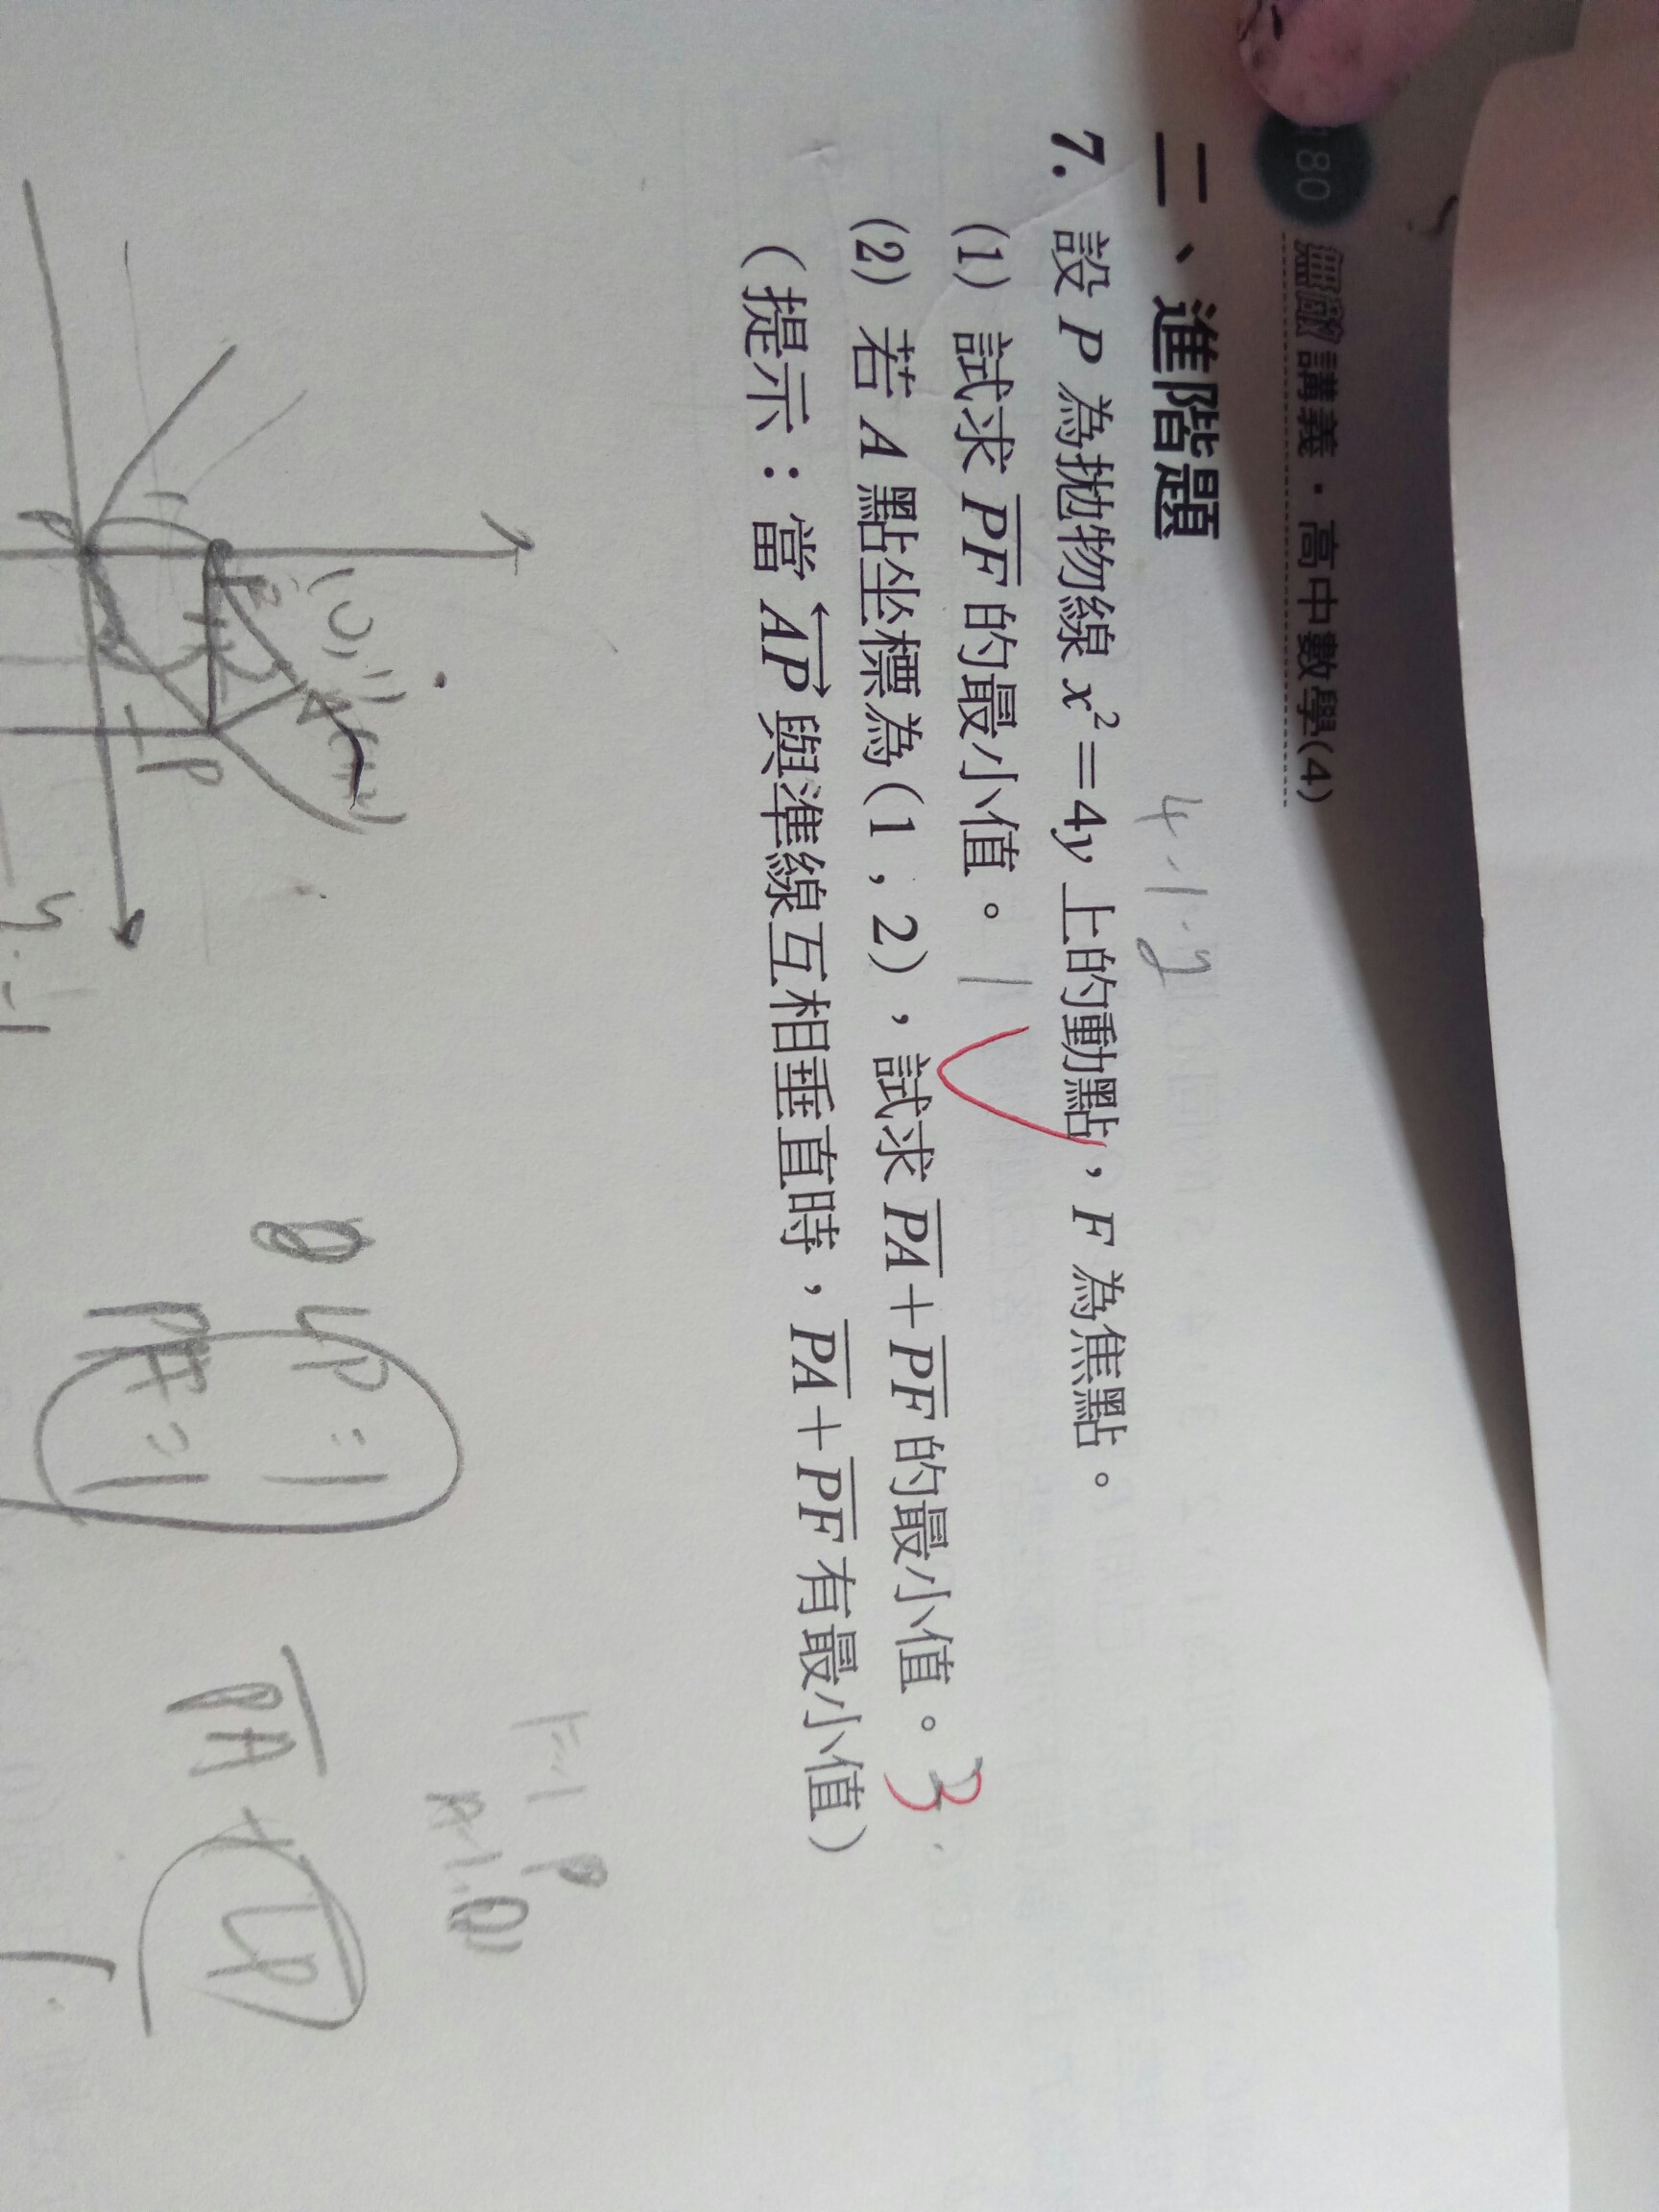 180 無敵講義・高中數學(4)
二、進階題
4·1·y
7. 設 P 為拋物線 x²=4y 上的動點，F 為焦點。
(1) 試求 PF 的最小值。 1
(2) 若 A 點坐標為(1，2)，試求 PA+PF 的最小值。 3
(提示：當 AP 與準線互相垂直時，PA+PF 有最小值)
(0,1)
F
A(1,2)
P
y=-1
LP=1
PF=1
PA+LP